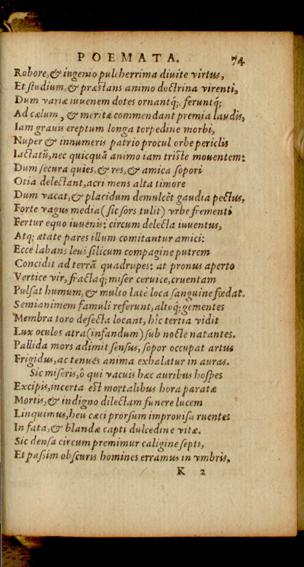 POEMATA. 74
Robore, & ingenio pulcherrima diuite virtus,
Et studium, & præstans animo doctrina virenti,
Dum variæ iuuenem dotes ornantq;, feruntq;
Ad cælum, & meritæ commendant premia laudis,
Iam grauis ereptum longa torpedine morbi,
Nuper & innumeris patrio procul orbe periclis
Iactatũ, nec quicquã animo iam triste mouentem:
Dum secura quies, & res, & amica sopori
Otia delectant, acri mens alta timore
Dum vacat, & placidum demulcēt gaudia pectus,
Forte vagus media (sic fors tulit) vrbe frementi
Fertur equo iuuenis: circum delecta iuuentus,
Atq; ætate pares illum comitantur amici:
Ecce labans leui silicum compagine putrem
Concidit ad terrã quadrupes: at pronus aperto
Vertice vir, fractaq; miser ceruice, cruentam
Pulsat humum, & multo latè loca sanguine fœdat.
Semianimem famuli referunt, altoq; gementes
Membra toro defecta locant, hîc tertia vidit
Lux oculos atra (infandum) sub nocte natantes.
Pallida mors adimit sensus, sopor occupat artus
Frigidus, ac tenueis anima exhalatur in auras.
Sic miseris, ô qui vacuis hæc auribus hospes
Excipis, incerta est mortalibus hora paratæ
Mortis, & indigno dilectam funere lucem
Linquimus, heu cæci prorsum improuisa ruentes
In fata, & blandæ capti dulcedine vitæ.
Sic densa circum premimur caligine septi,
Et passim obscuris homines erramus in vmbris,
K 2